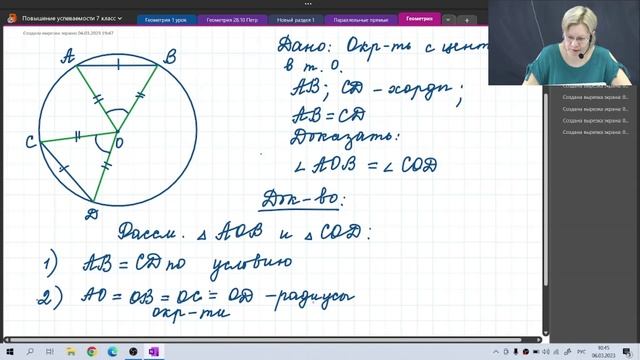 Повышение успеваемости 7 класс
Геометрия 1 урок
Геометрия 28.10 Петр
Новый раздел 1
Параллельные прямые
Геометрия
Создана вырезка экрана: 06.03.2023 10:47
Создана вырезка экрана: 0...
Создана вырезка экрана: 0...
Создана вырезка экрана: 0...
Создана вырезка экрана: 0...
A
B
C
O
D
Дано: Окр-ть с цент
в т. О.
AB; CD - хорды;
AB = CD
Доказать:
∠ AOB = ∠ COD
Док-во:
Рассм. △ AOB и △ COD:
1) AB = CD по условию
2) AO = OB = OC = OD - радиусы
окр-ти
РУС
10:45
06.03.2023